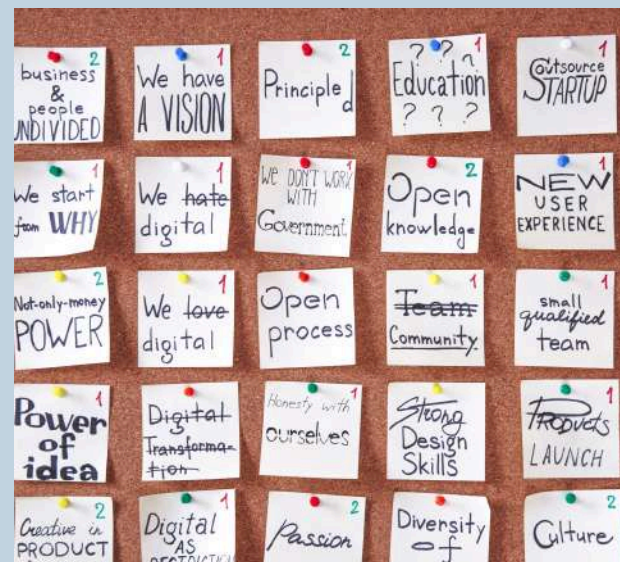 2
business
&
people
UNDIVIDED
1
We have
A VISION
2
Principled
1
? ? ?
Education
? ? ?
1
Outsource
STARTUP
1
We start
from WHY
1
We hate
digital
1
WE DON'T WORK
WITH
Government
2
Open
knowledge
1
NEW
USER
EXPERIENCE
2
Not-only-money
POWER
1
We love
digital
Open
process
1
Team
Community
1
small
qualified
team
1
Power
of
idea
Digital
Transforma-
tion
1
Honesty with
ourselves
Strong
Design
Skills
1
Products
LAUNCH
2
Creative in
PRODUCT
1
Digital
AS
2
Passion
2
Diversity
of
2
Culture